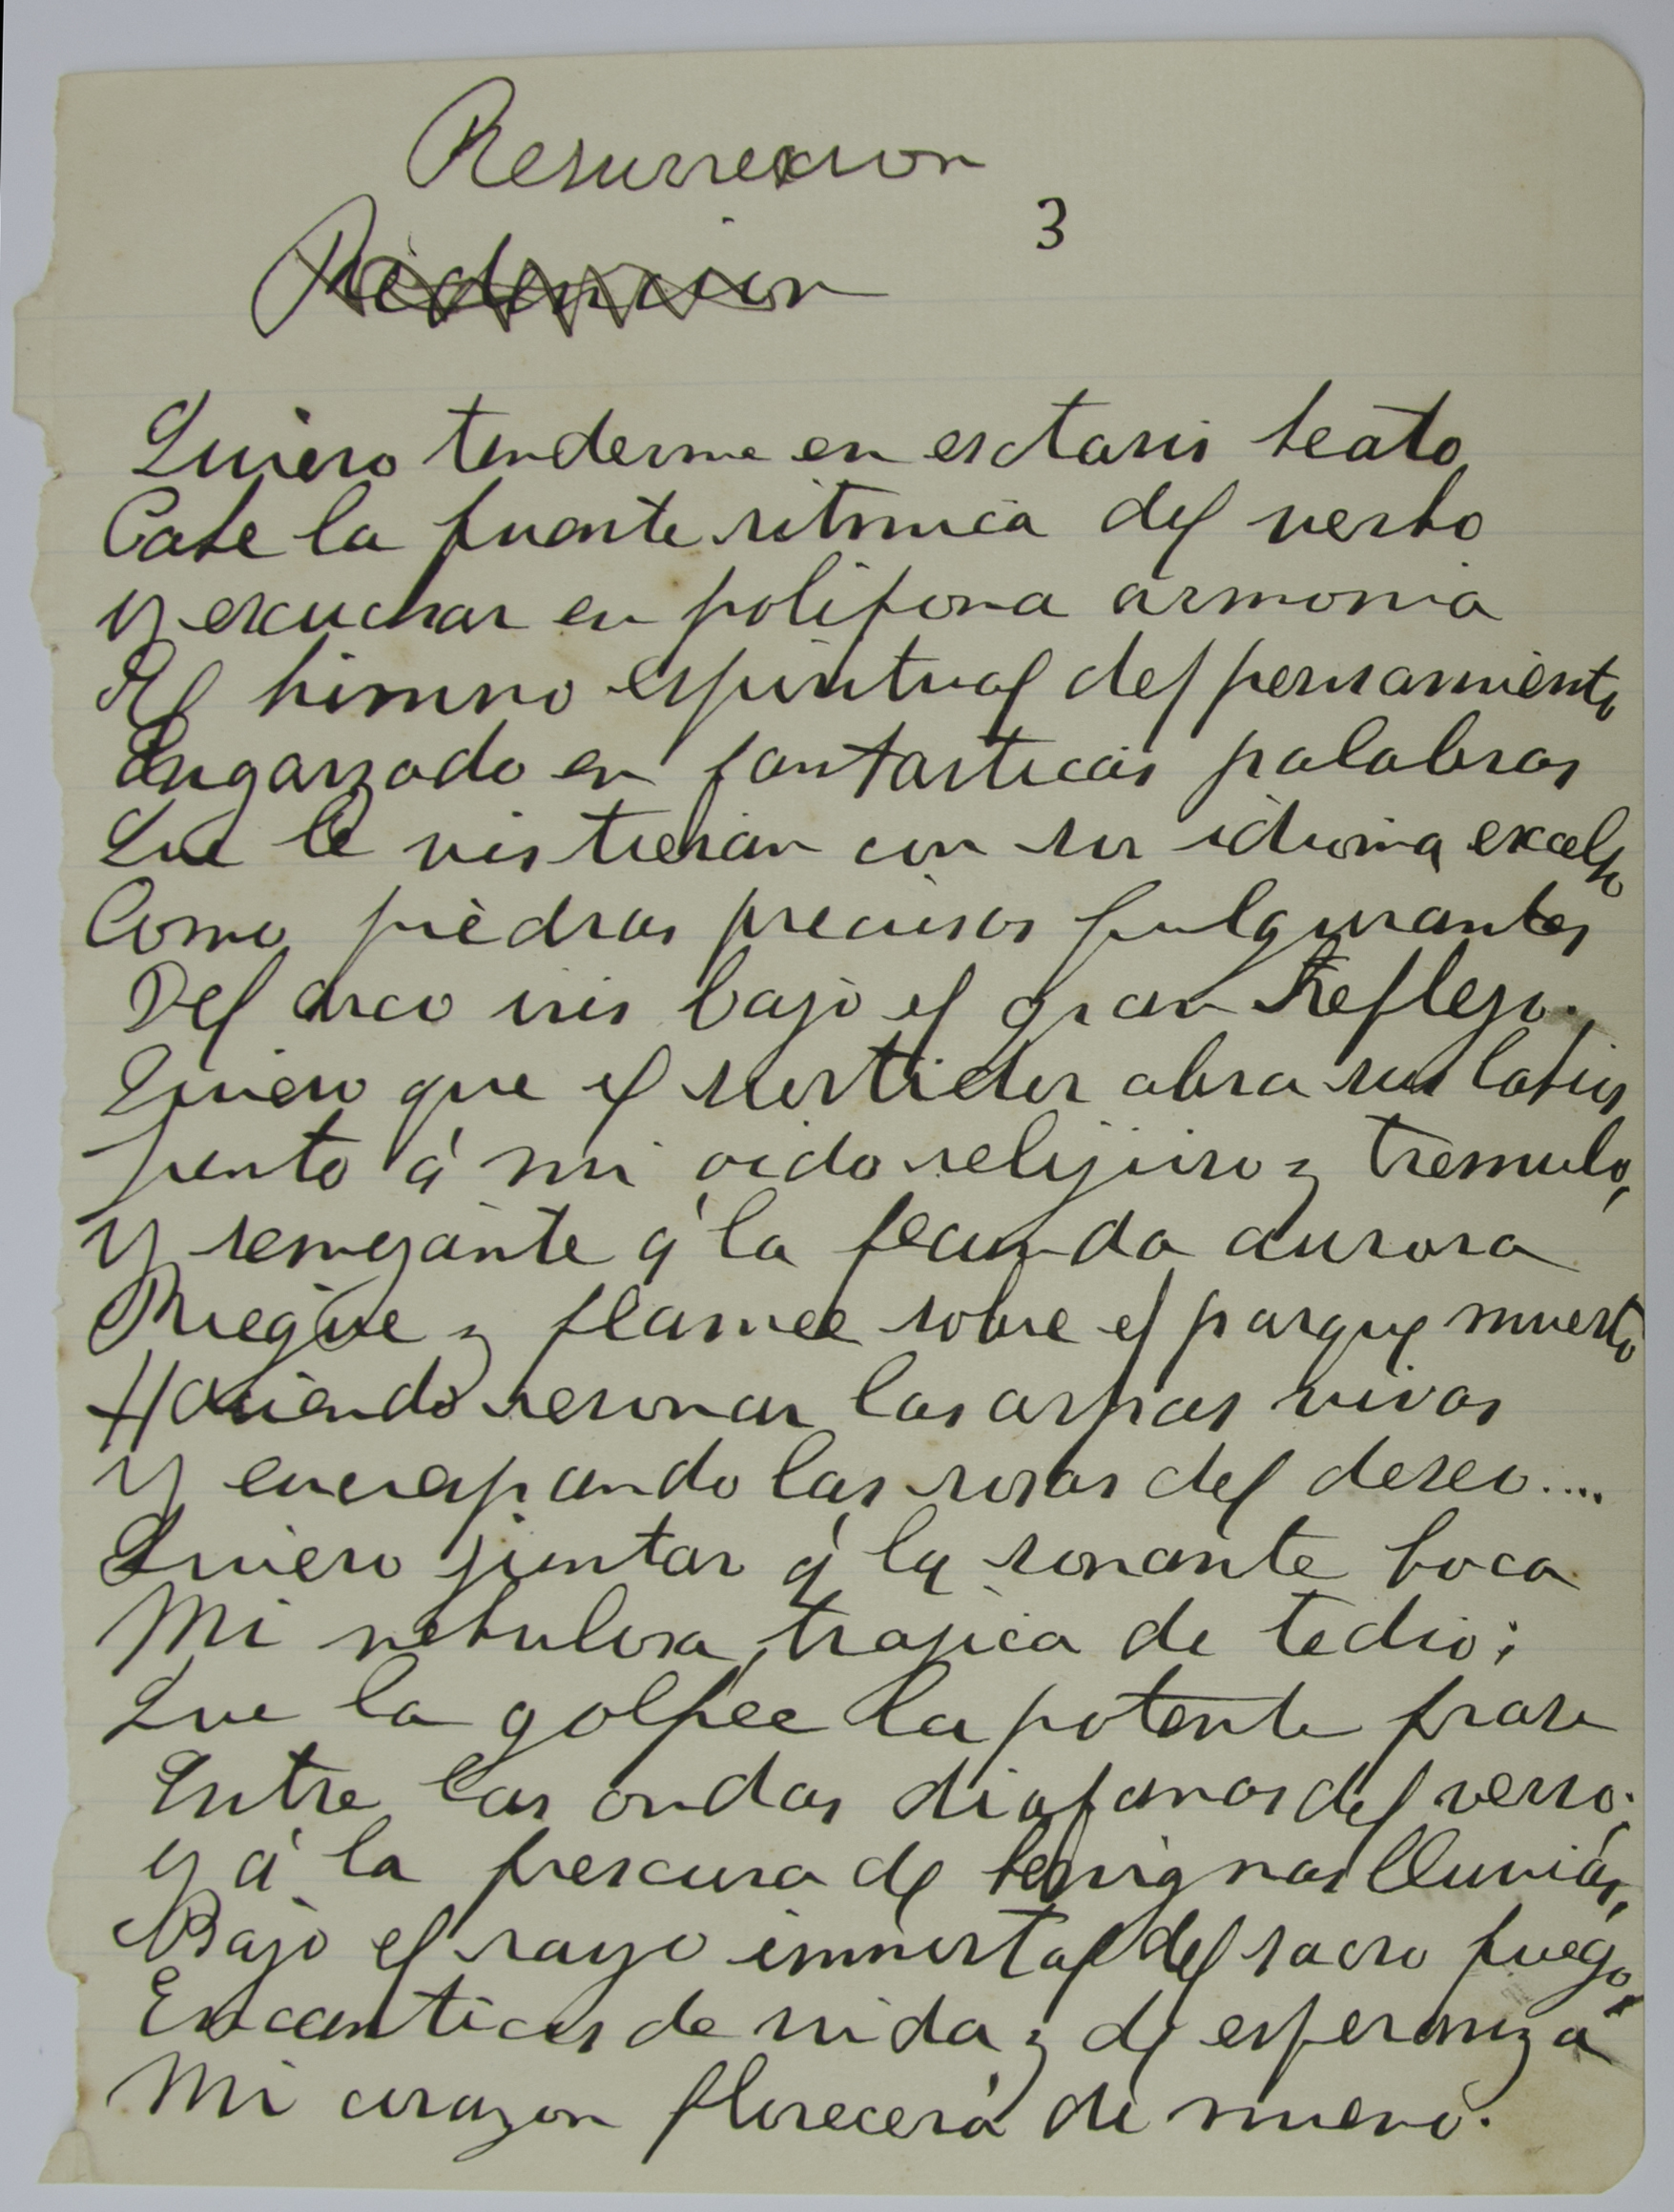 Resurrexcion
3
Redencion
Quiero tenderme en esctasis beato
Cabe la fuente ritmica del verbo
y escuchar en polifona armonia
El himno espiritual del pensamiento
Engarzado en fantasticas palabras
Que le vistieran con su idioma excelso
Como piedras precisas fulgurantes
Del arco iris bajo el gran Reflejo.
Quiero que el surtidor abra sus labios
Junto á mi oido relijioso y tremulo,
y semejante á la fecunda aurora
Riegue y flamee sobre el parque muerto
Haciendo resonar las arpas vivas
y encrespando las rosas del deseo....
Quiero juntar á la sonante boca
Mi nebulosa trajica de tedio;
Que la golpee la potente frase
Entre las ondas diafanas del verso;
y á la frescura de benignas lluvias,
Bajo el rayo inmortal del sacro fuego,
En canticos de vida y de esperanza
Mi corazon florecerá de nuevo.